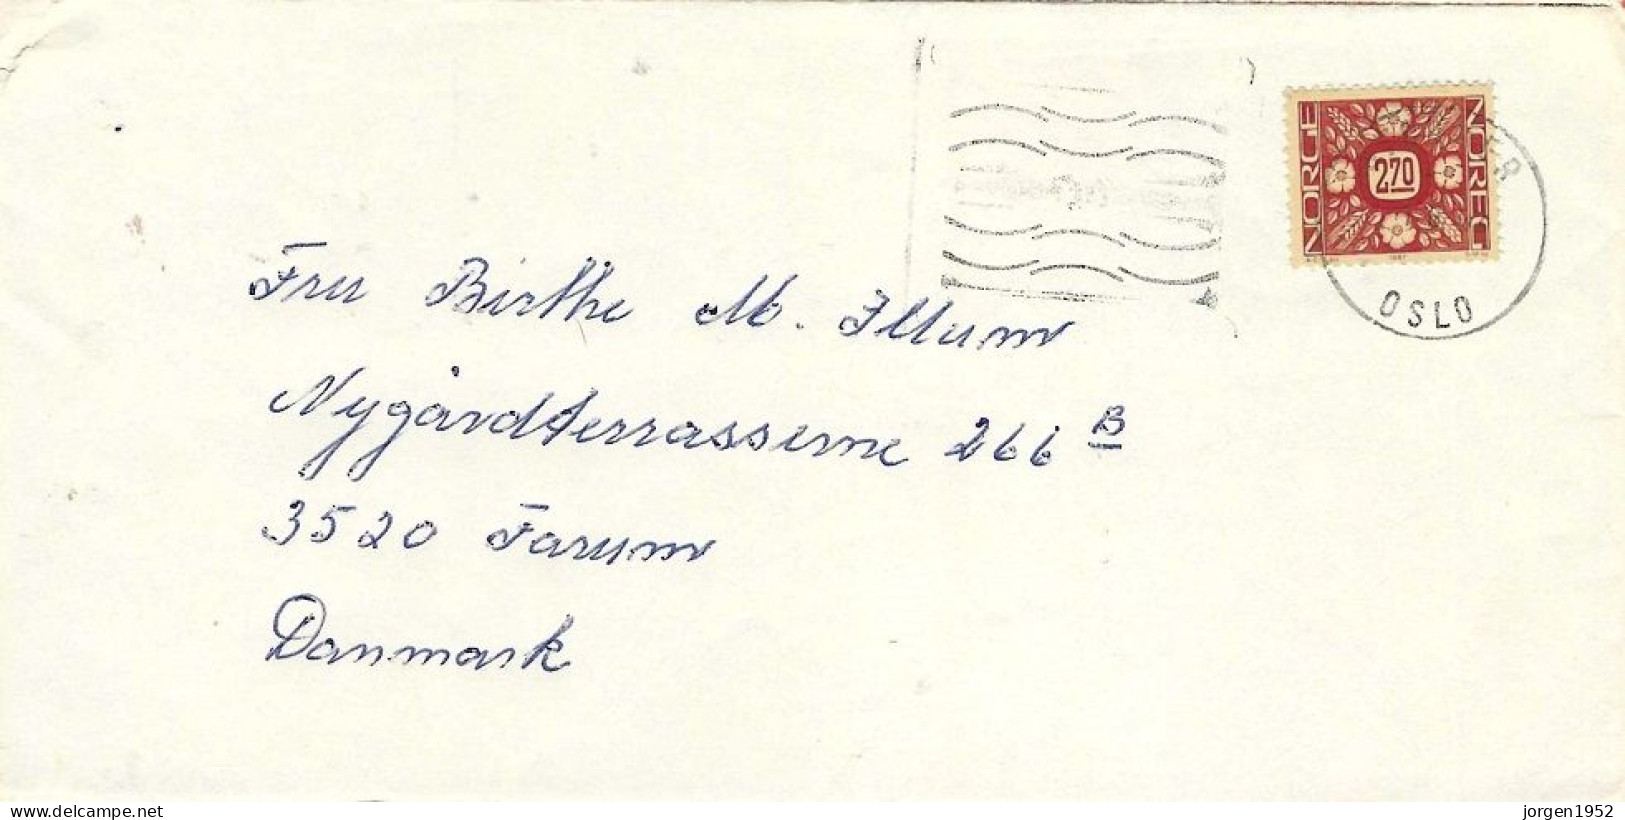 NORGE
2,70
NOREG
1987
OSLO
Fru Birthe M. Illum
Nygårdterrasserne 266 B
3520 Farum
Danmark
www.delcampe.net
jorgen1952